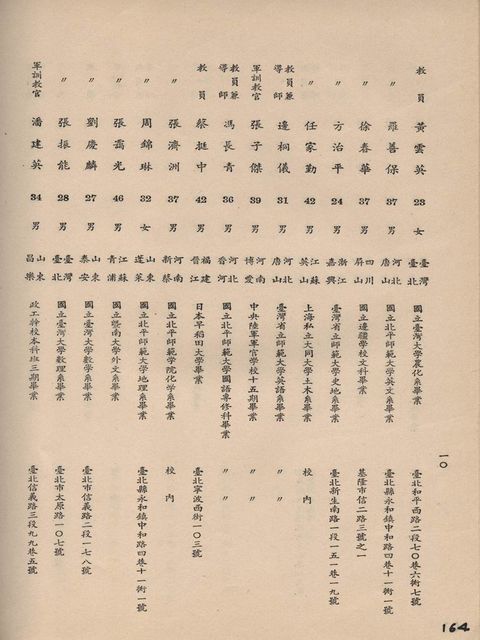 教員 黃雲英 23 女 臺灣臺北 國立臺灣大學農化系畢業 臺北和平西路二段七〇巷六衖七號
〃 羅善保 37 男 河北唐山 國立北平師範大學英文系畢業 臺北縣永和鎮中和路四巷十一衖一號
〃 徐春華 37 男 四川屏山 國立邊疆學校文科畢業 基隆市信二路三號之一
〃 方治平 24 男 浙江嘉興 臺灣省立師範大學史地系畢業 臺北新生南路一段一五一巷一九號
〃 任家勤 42 男 江蘇英山 上海私立大同大學土木系畢業 校內
教員兼導師 邊桐儀 31 男 河北唐山 臺灣省立師範大學英語系畢業 〃 〃
軍訓教官 張子傑 39 男 河南博愛 中央陸軍軍官學校十五期畢業 〃 〃
教員兼導師 馮長青 36 男 河北晉河 國立北平師範大學國語專修科畢業 〃 〃
教員 蔡挺中 42 男 福建晉江 日本早稻田大學畢業 臺北寧波西街一〇三號
〃 張濟洲 37 男 河南新蔡 國立北平師範學院化學系畢業 校內
〃 周錦琳 32 女 山東蓬萊 國立北平師範大學地理系畢業 臺北縣永和鎮中和路四巷十一衖一號
〃 張霱光 46 男 江蘇青浦 國立暨南大學外文系畢業
〃 劉慶麟 27 男 山東泰安 國立臺灣大學數學系畢業 臺北市信義路二段一七八號
〃 張振能 28 男 臺灣臺北 國立臺灣大學數理系畢業 臺北市太原路一〇七號
軍訓教官 潘建英 34 男 山東昌樂 政工幹校本科班三期畢業 臺北信義路三段九九巷五號
一〇
164